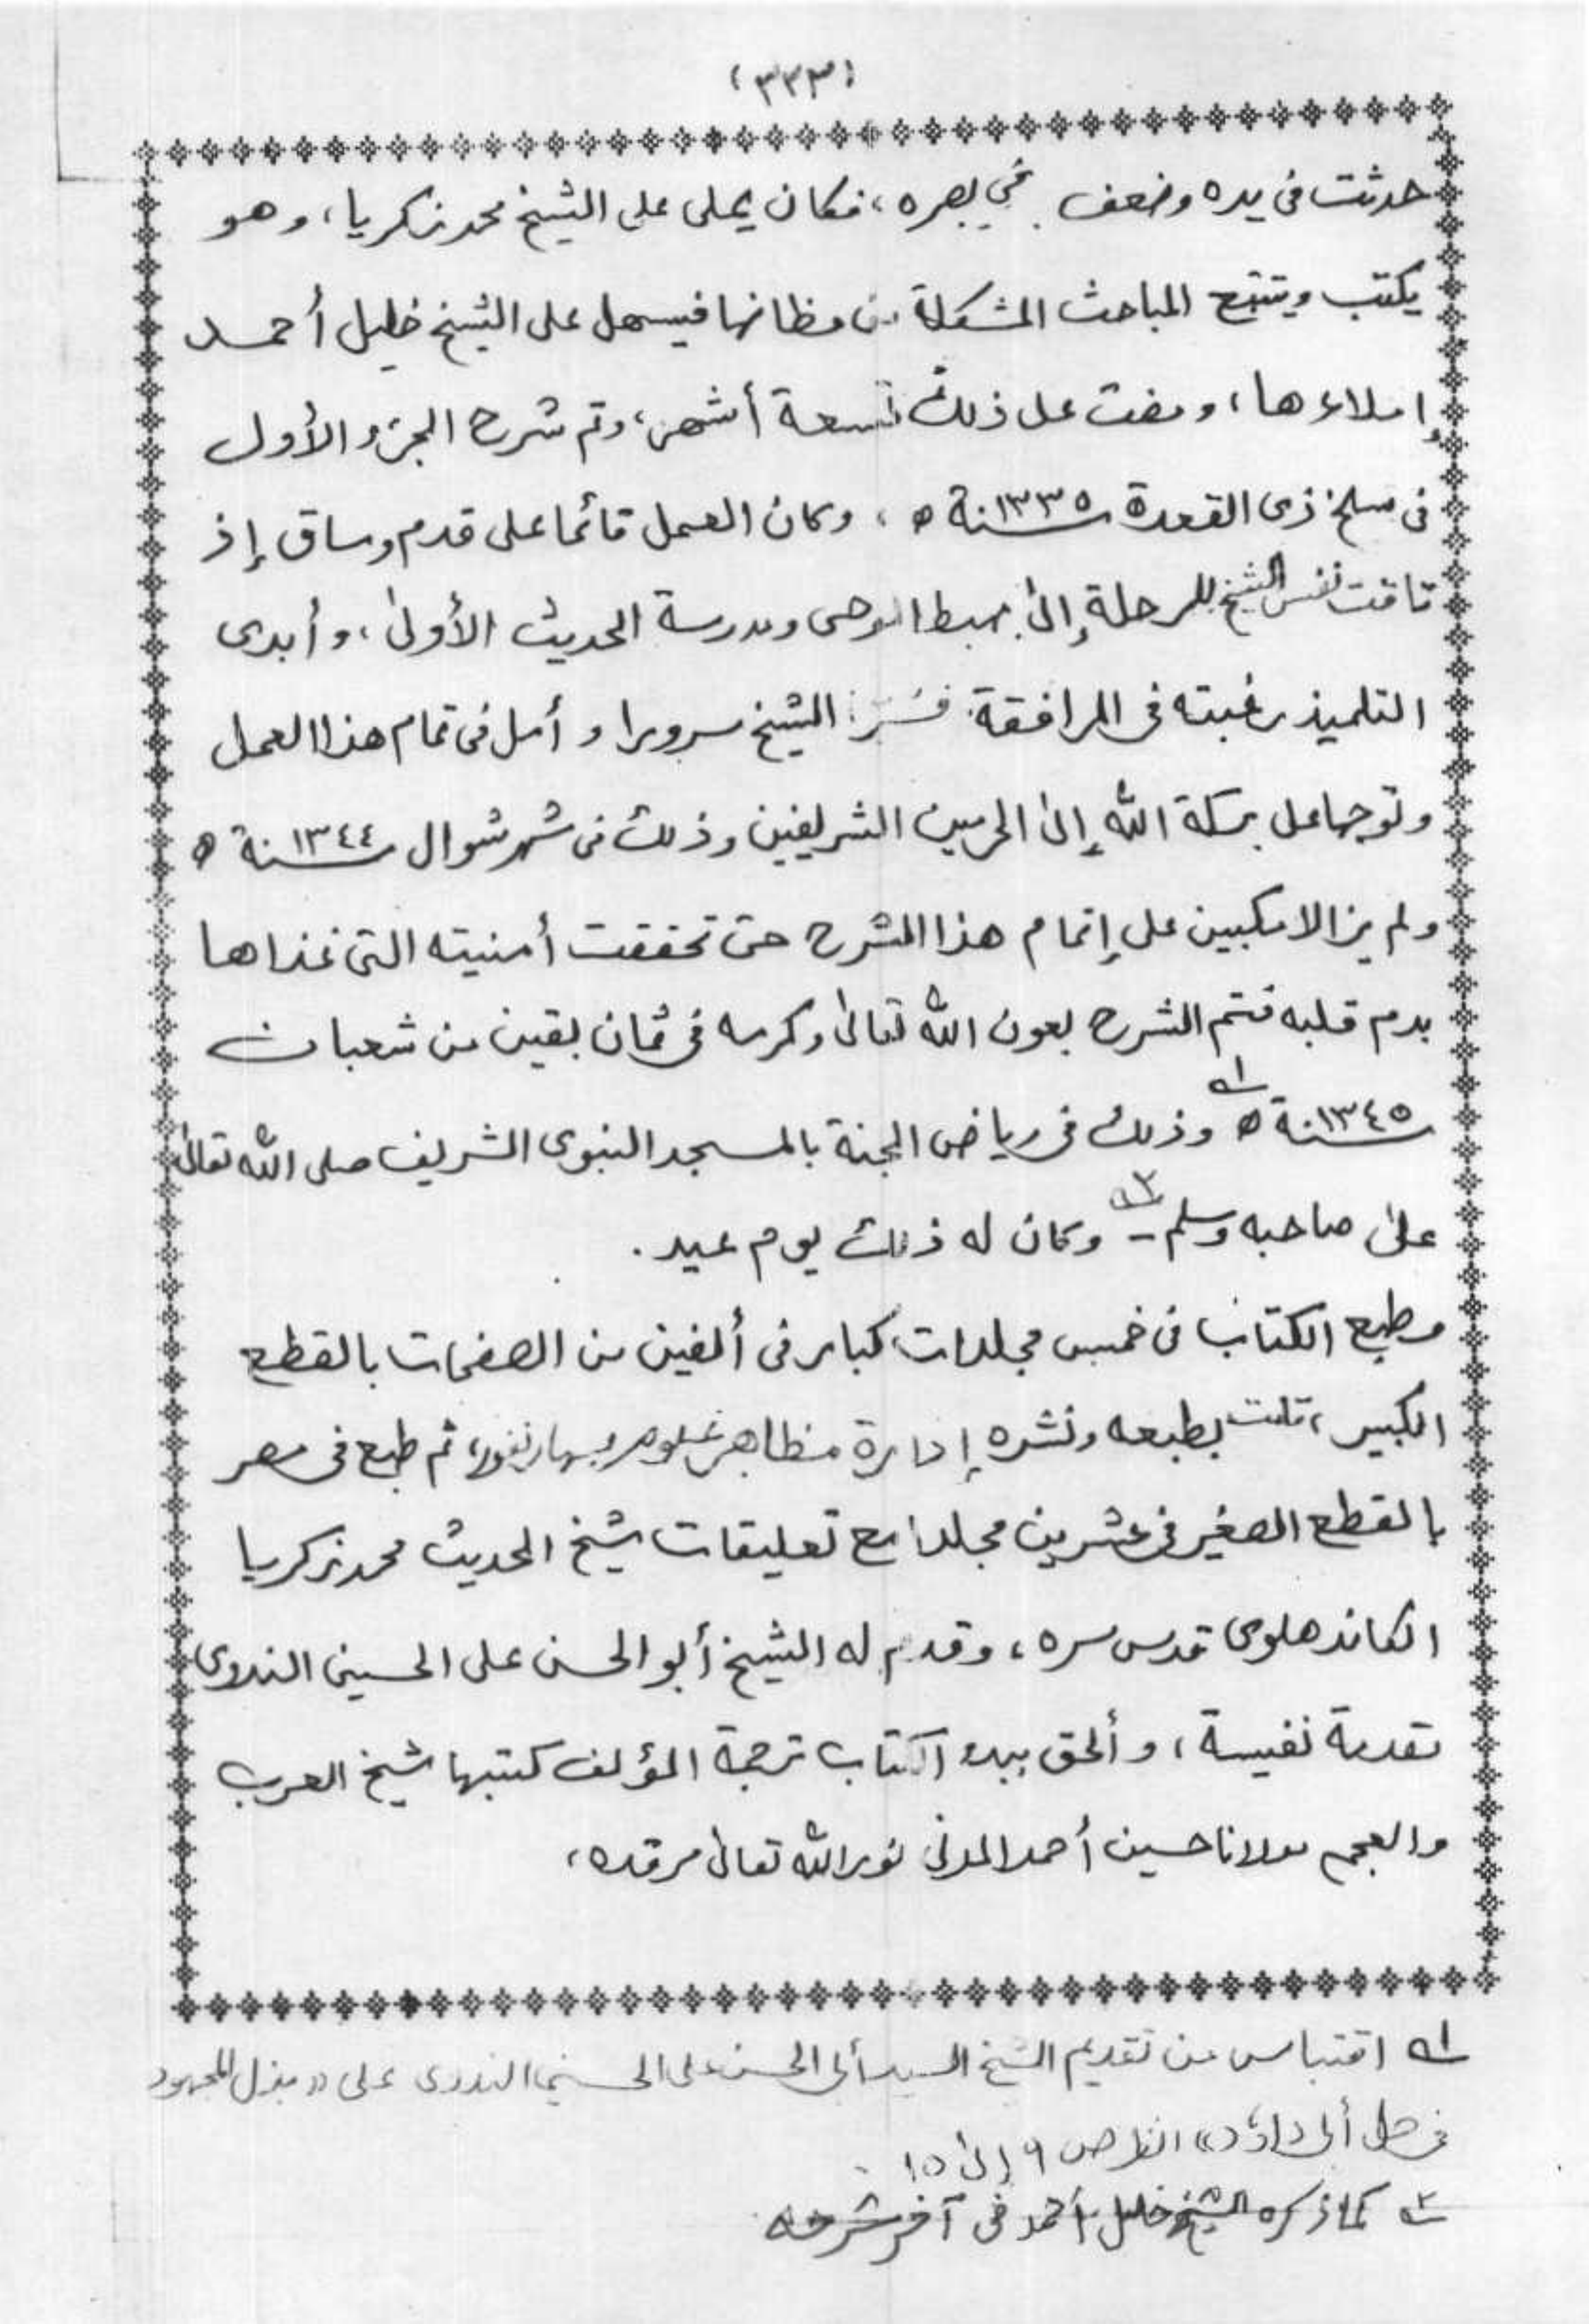 (٣٣٣)
حدثت فى يده وضعف فى بصره، فكان يملى على الشيخ محمد زكريا، وهو
يكتب ويتتبع المباحث المشكلة من مظانها فيسهل على الشيخ خليل أحمد
إملاءها، ومضت على ذلك تسعة أشهر، وتم شرح الجزء الأول
فى سلخ ذى القعدة سنة ١٣٣٥ ه، وكان العمل قائما على قدم وساق إذ
تاقت نفس الشيخ للرحلة إلى مهبط الوحى ومدرسة الحديث الأولىٰ، وأبدى
التلميذ رغبته فى المرافقة فسُرّ الشيخ سرورا وأمل فى تمام هذا العمل
وتوجها على بركة الله إلىٰ الحرمين الشريفين وذلك فى شهر شوال سنة ١٣٤٤ ه
ولم يزالا مكبين على إتمام هذا الشرح حتى تحققت أمنيته التى غذاها
بدم قلبه فتم الشرح بعون الله تعالىٰ وكرمه فى ثمان بقين من شعبان
سنة ١٣٤٥ ه ؁١ وذلك فى رياض الجنة بالمسجد النبوى الشريف صلى الله تعالىٰ
علىٰ صاحبه وسلم ـ ؁٢ وكان له ذلك يوم عيد.
وطبع الكتاب فى خمس مجلدات كبار فى ألفين من الصفحات بالقطع
الكبير، قامت بطبعه ونشره إدارة مظاهر علوم سهارنفور، ثم طبع فى مصر
بالقطع الصغير فى عشرين مجلدا مع تعليقات شيخ الحديث محمد زكريا
الكاندهلوى قدس سره، وقدم له الشيخ أبو الحسن على الحسينى الندوى
تقدمة نفيسة، وألحق ببدء الكتاب ترجمة المؤلف كتبها شيخ العرب
والعجم مولانا حسين أحمد المدنى نور الله تعالىٰ مرقده،
؁١ اقتباس من تقديم الشيخ السيد أبى الحسن على الحسينى الندوى على «بذل المجهود
فى حل أبى داؤد» انظر ص ٩ إلىٰ ١٥
؁٢ كما ذكره الشيخ خليل أحمد فى آخر شرحه